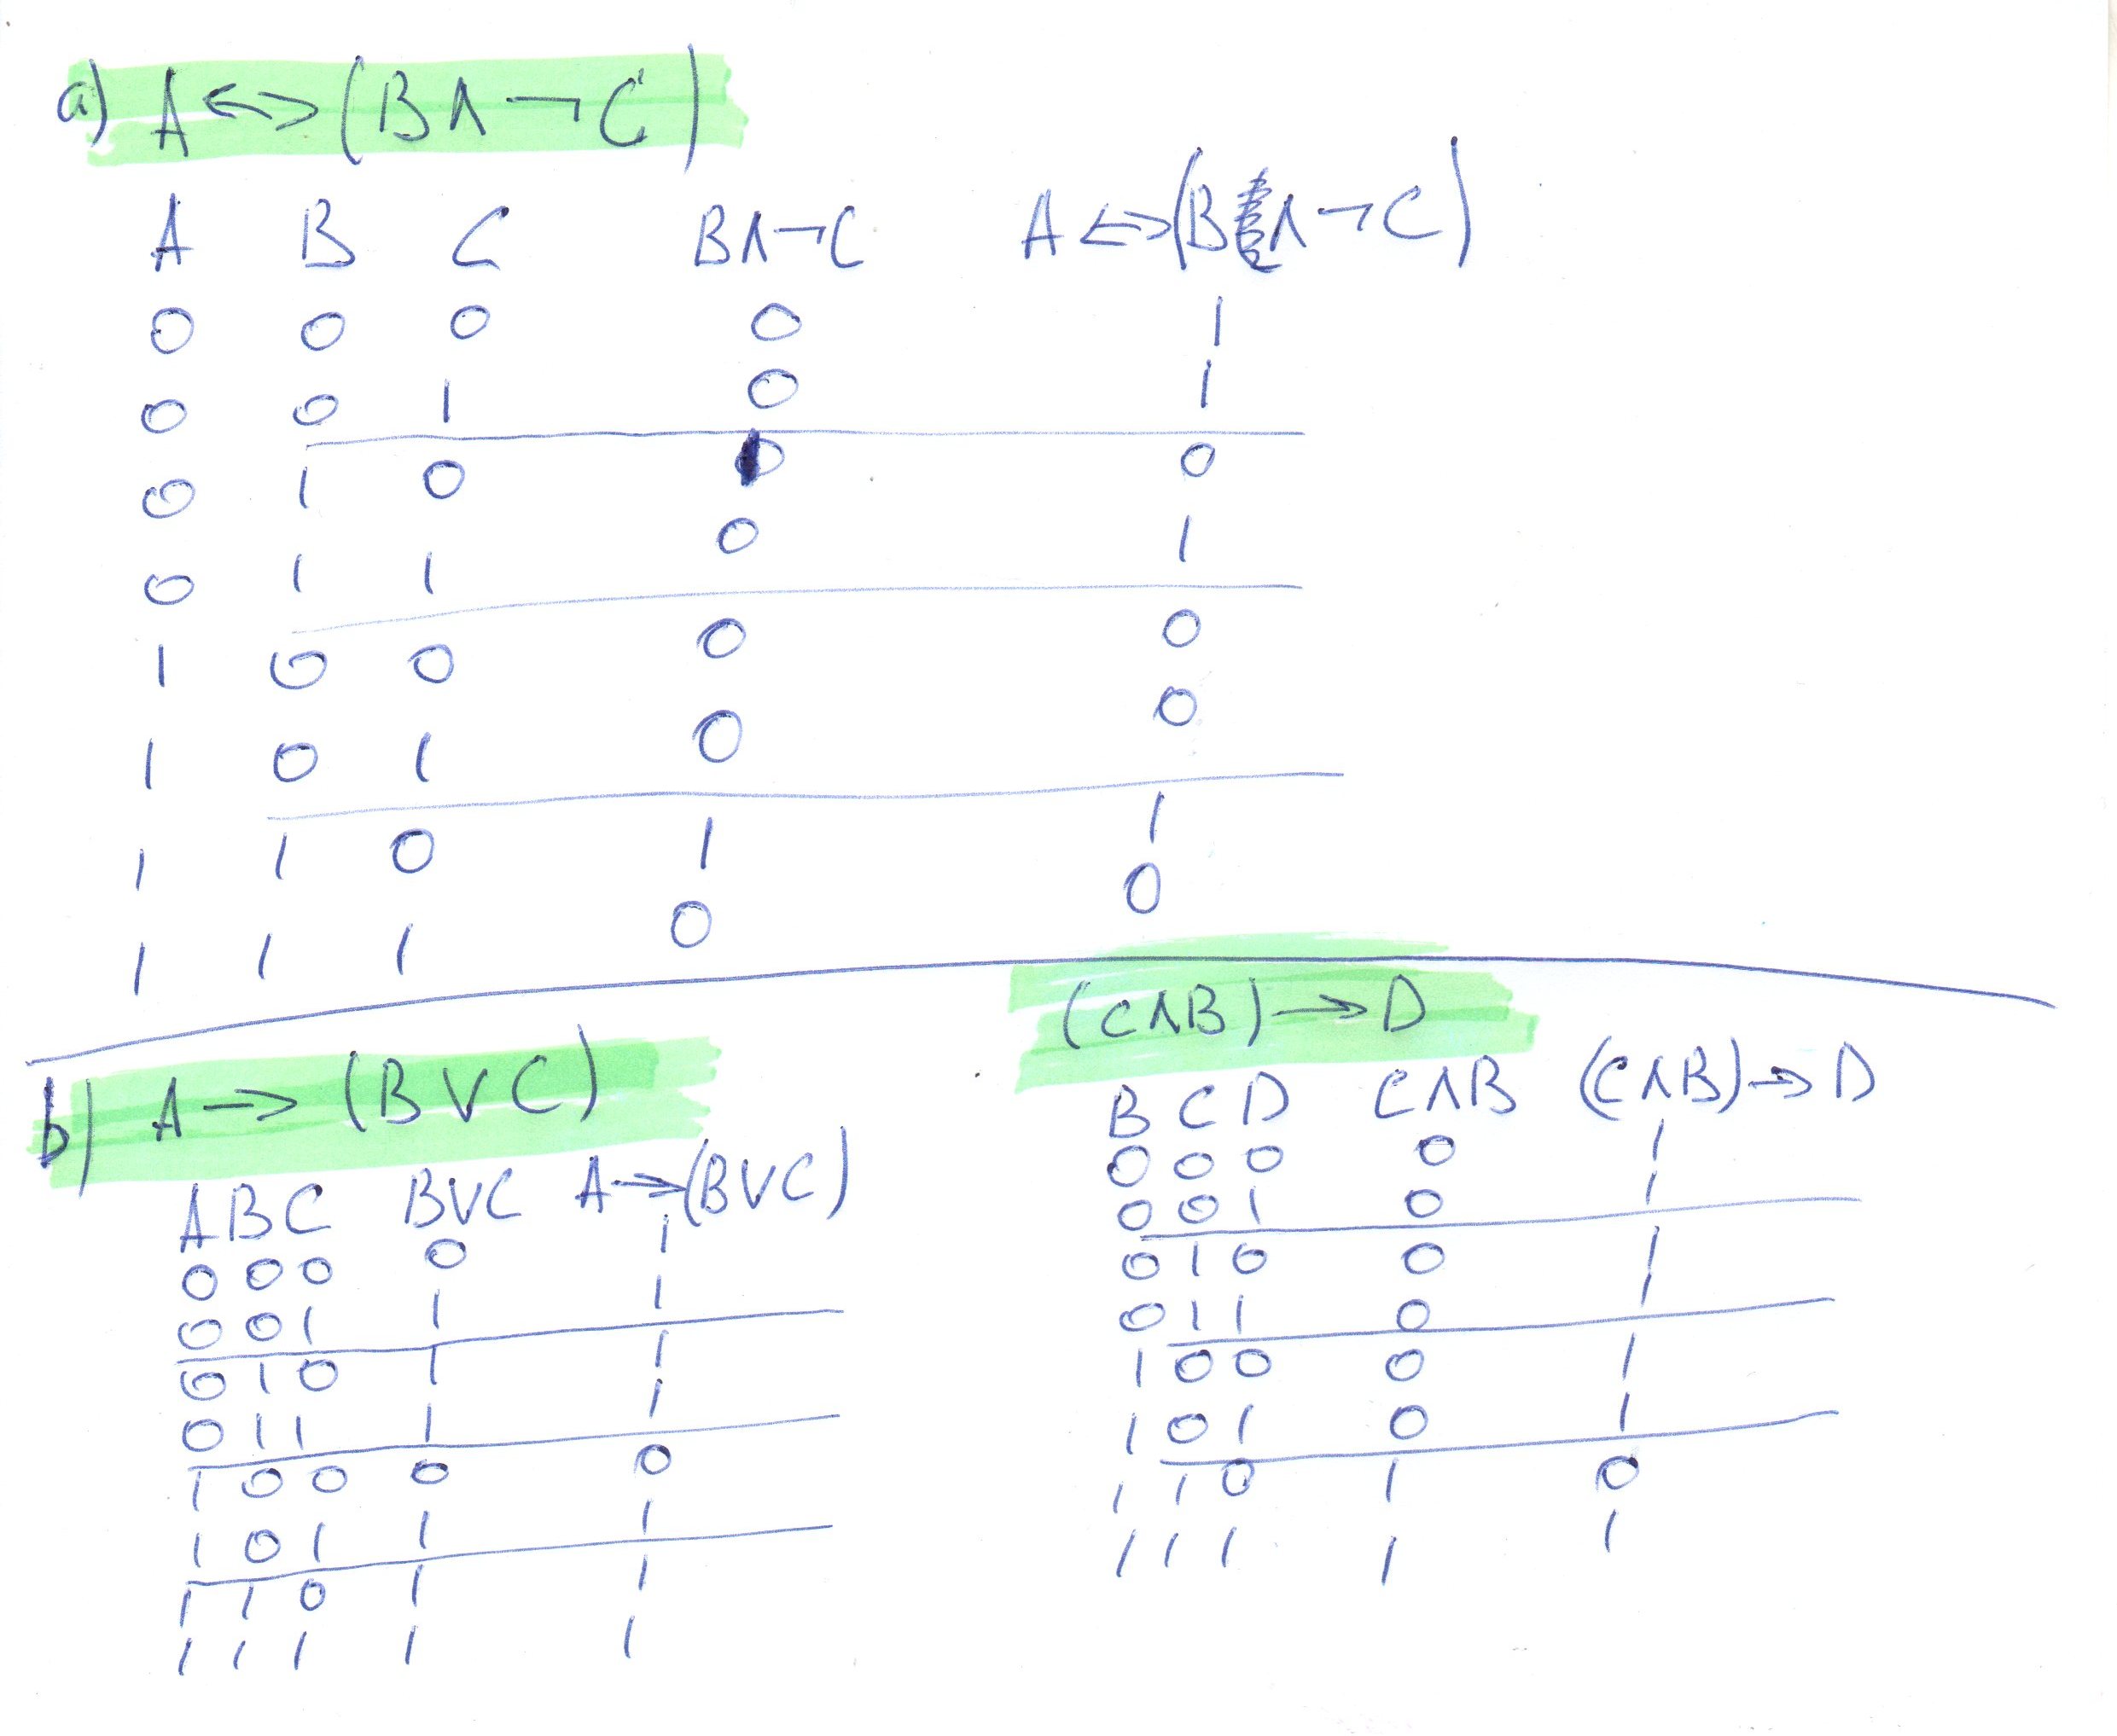 a) A <-> (B ∧ ¬ C)
A B C B∧¬C A <-> (B ∧ ¬ C)
0 0 0 0 1
0 0 1 0 1
0 1 0 1 0
0 1 1 0 1
1 0 0 0 0
1 0 1 0 0
1 1 0 1 1
1 1 1 0 0
b) A -> (B ∨ C)
A B C B∨C A -> (B∨C)
0 0 0 0 1
0 0 1 1 1
0 1 0 1 1
0 1 1 1 1
1 0 0 0 0
1 0 1 1 1
1 1 0 1 1
1 1 1 1 1
(C∧B) -> D
B C D C∧B (C∧B) -> D
0 0 0 0 1
0 0 1 0 1
0 1 0 0 1
0 1 1 0 1
1 0 0 0 1
1 0 1 0 1
1 1 0 1 0
1 1 1 1 1